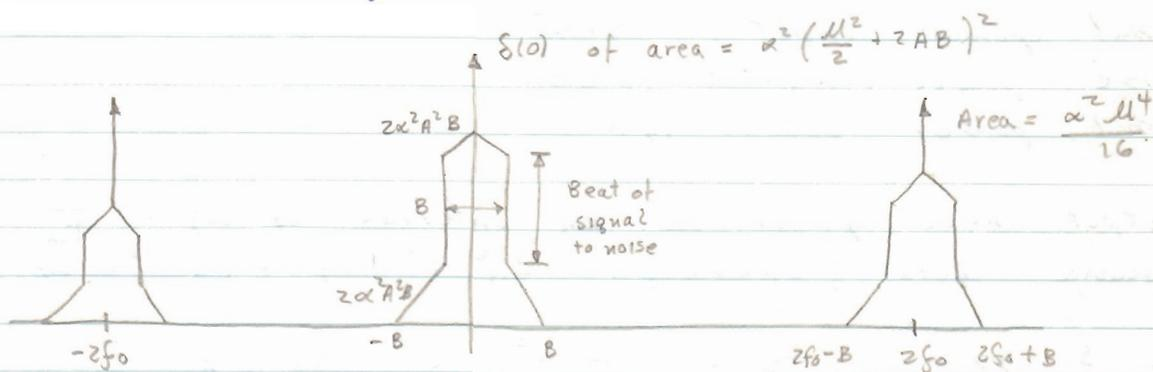 δ(0) of area = α²(μ²/2 + 2AB)²
2α²A²B
Area = α²μ⁴/16
B
Beat of
signal
to noise
2α²A²B
-2f₀
-B
B
2f₀-B
2f₀
2f₀+B